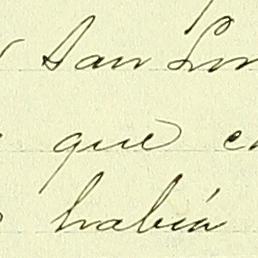 San Lor
que e
había